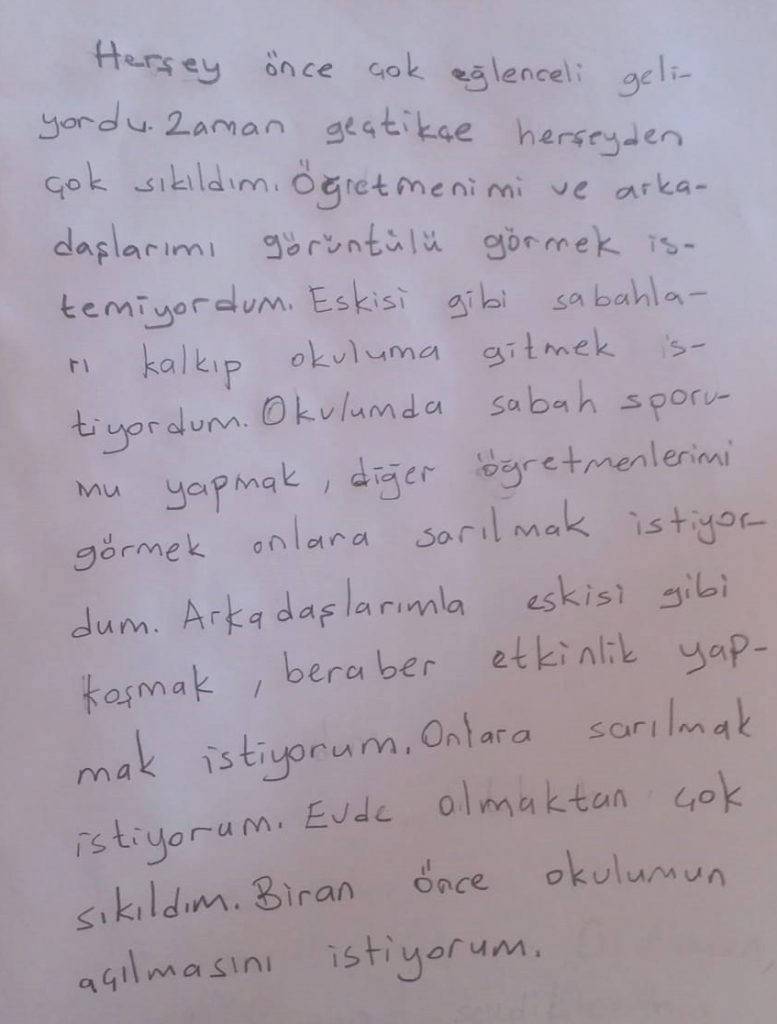 Herşey önce çok eğlenceli geli-
yordu. Zaman geçtikçe herşeyden
çok sıkıldım. Öğretmenimi ve arka-
daşlarımı görüntülü görmek is-
temiyordum. Eskisi gibi sabahla-
rı kalkıp okuluma gitmek is-
tiyordum. Okulumda sabah sporu-
mu yapmak, diğer öğretmenlerimi
görmek onlara sarılmak istiyor-
dum. Arkadaşlarımla eskisi gibi
koşmak, beraber etkinlik yap-
mak istiyorum. Onlara sarılmak
istiyorum. Evde olmaktan çok
sıkıldım. Biran önce okulumun
açılmasını istiyorum.